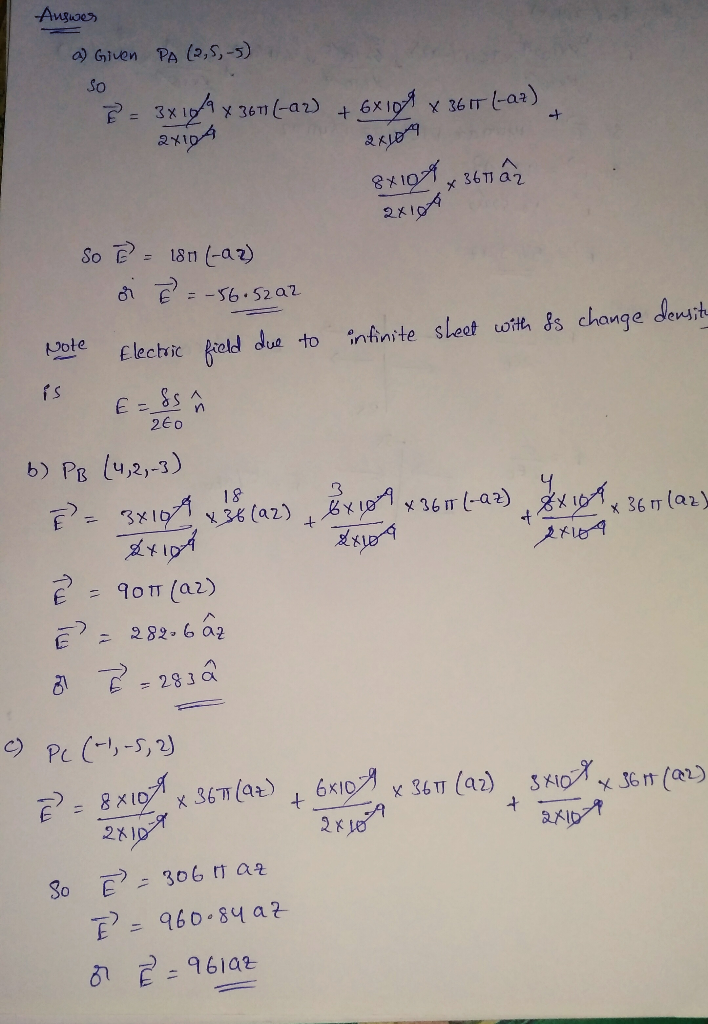 Answer
a) Given PA (2,5,-5)
So
E⃗ = 3x10⁻⁹/2x10⁻⁹ x 36π (-az) + 6x10⁻⁹/2x10⁻⁹ x 36π (-az) +
8x10⁻⁹/2x10⁻⁹ x 36π âz
So E⃗ = 18π (-az)
or E⃗ = -56.52 az
Note Electric field due to infinite sheet with ρs change density
is E = ρs/2ϵ0 n̂
b) PB (4,2,-3)
E⃗ = 3x10⁻⁹/2x10⁻⁹ x 36 18 (az) + 6 3 x10⁻⁹/2x10⁻⁹ x 36π (-az) + 8 4 x10⁻⁹/2x10⁻⁹ x 36π (az)
E⃗ = 90π (az)
E⃗ = 282.6 âz
or E⃗ = 283 â
c) PC (-1,-5,2)
E⃗ = 8x10⁻⁹/2x10⁻⁹ x 36π (az) + 6x10⁻⁹/2x10⁻⁹ x 36π (az) + 3x10⁻⁹/2x10⁻⁹ x 36π (az)
So E⃗ = 306 π az
E⃗ = 960.84 az
or E⃗ = 961az